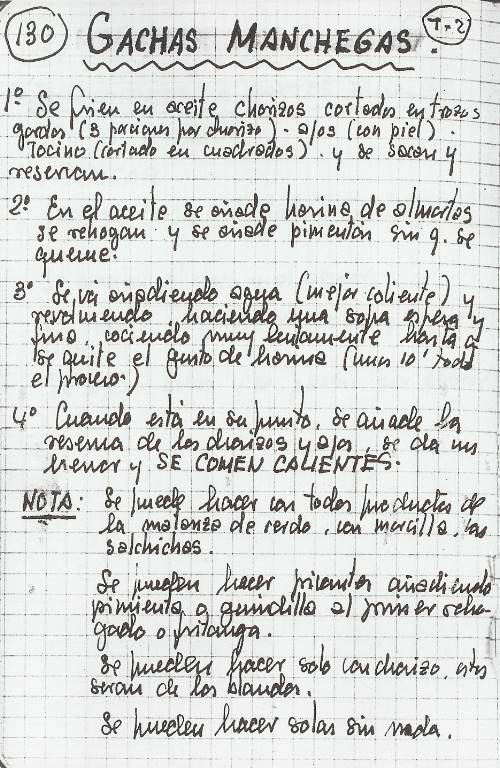 130 GACHAS MANCHEGAS. T-2
1º Se frien en aceite chorizos cortados en trozos
gordos (3 porciones por chorizo) - ajos (con piel) -
Tocino (cortado en cuadrados) - y se sacan y
reservan.
2º En el aceite se añade harina de almortas
se rehogan y se añade pimentón sin q. se
queme.
3º Se va añadiendo agua (mejor caliente) y
revolviendo haciendo una sopa espesa y
fina, cociendo muy lentamente hasta q
se quite el gusto de harina (unos 10' todo
el proceso.)
4º Cuando está en su punto, se añade la
reserva de los chorizos y ajos, se da un
hervor y SE COMEN CALIENTES.
NOTA: Se puede hacer con todos productos de
la matanza de cerdo, con morcilla, con
salchichas.
Se pueden hacer picantes añadiendo
pimienta o guindilla al primer reho-
gado o fritanga.
Se pueden hacer solo con chorizo, estos
seran de los blandos.
Se pueden hacer solas sin nada.